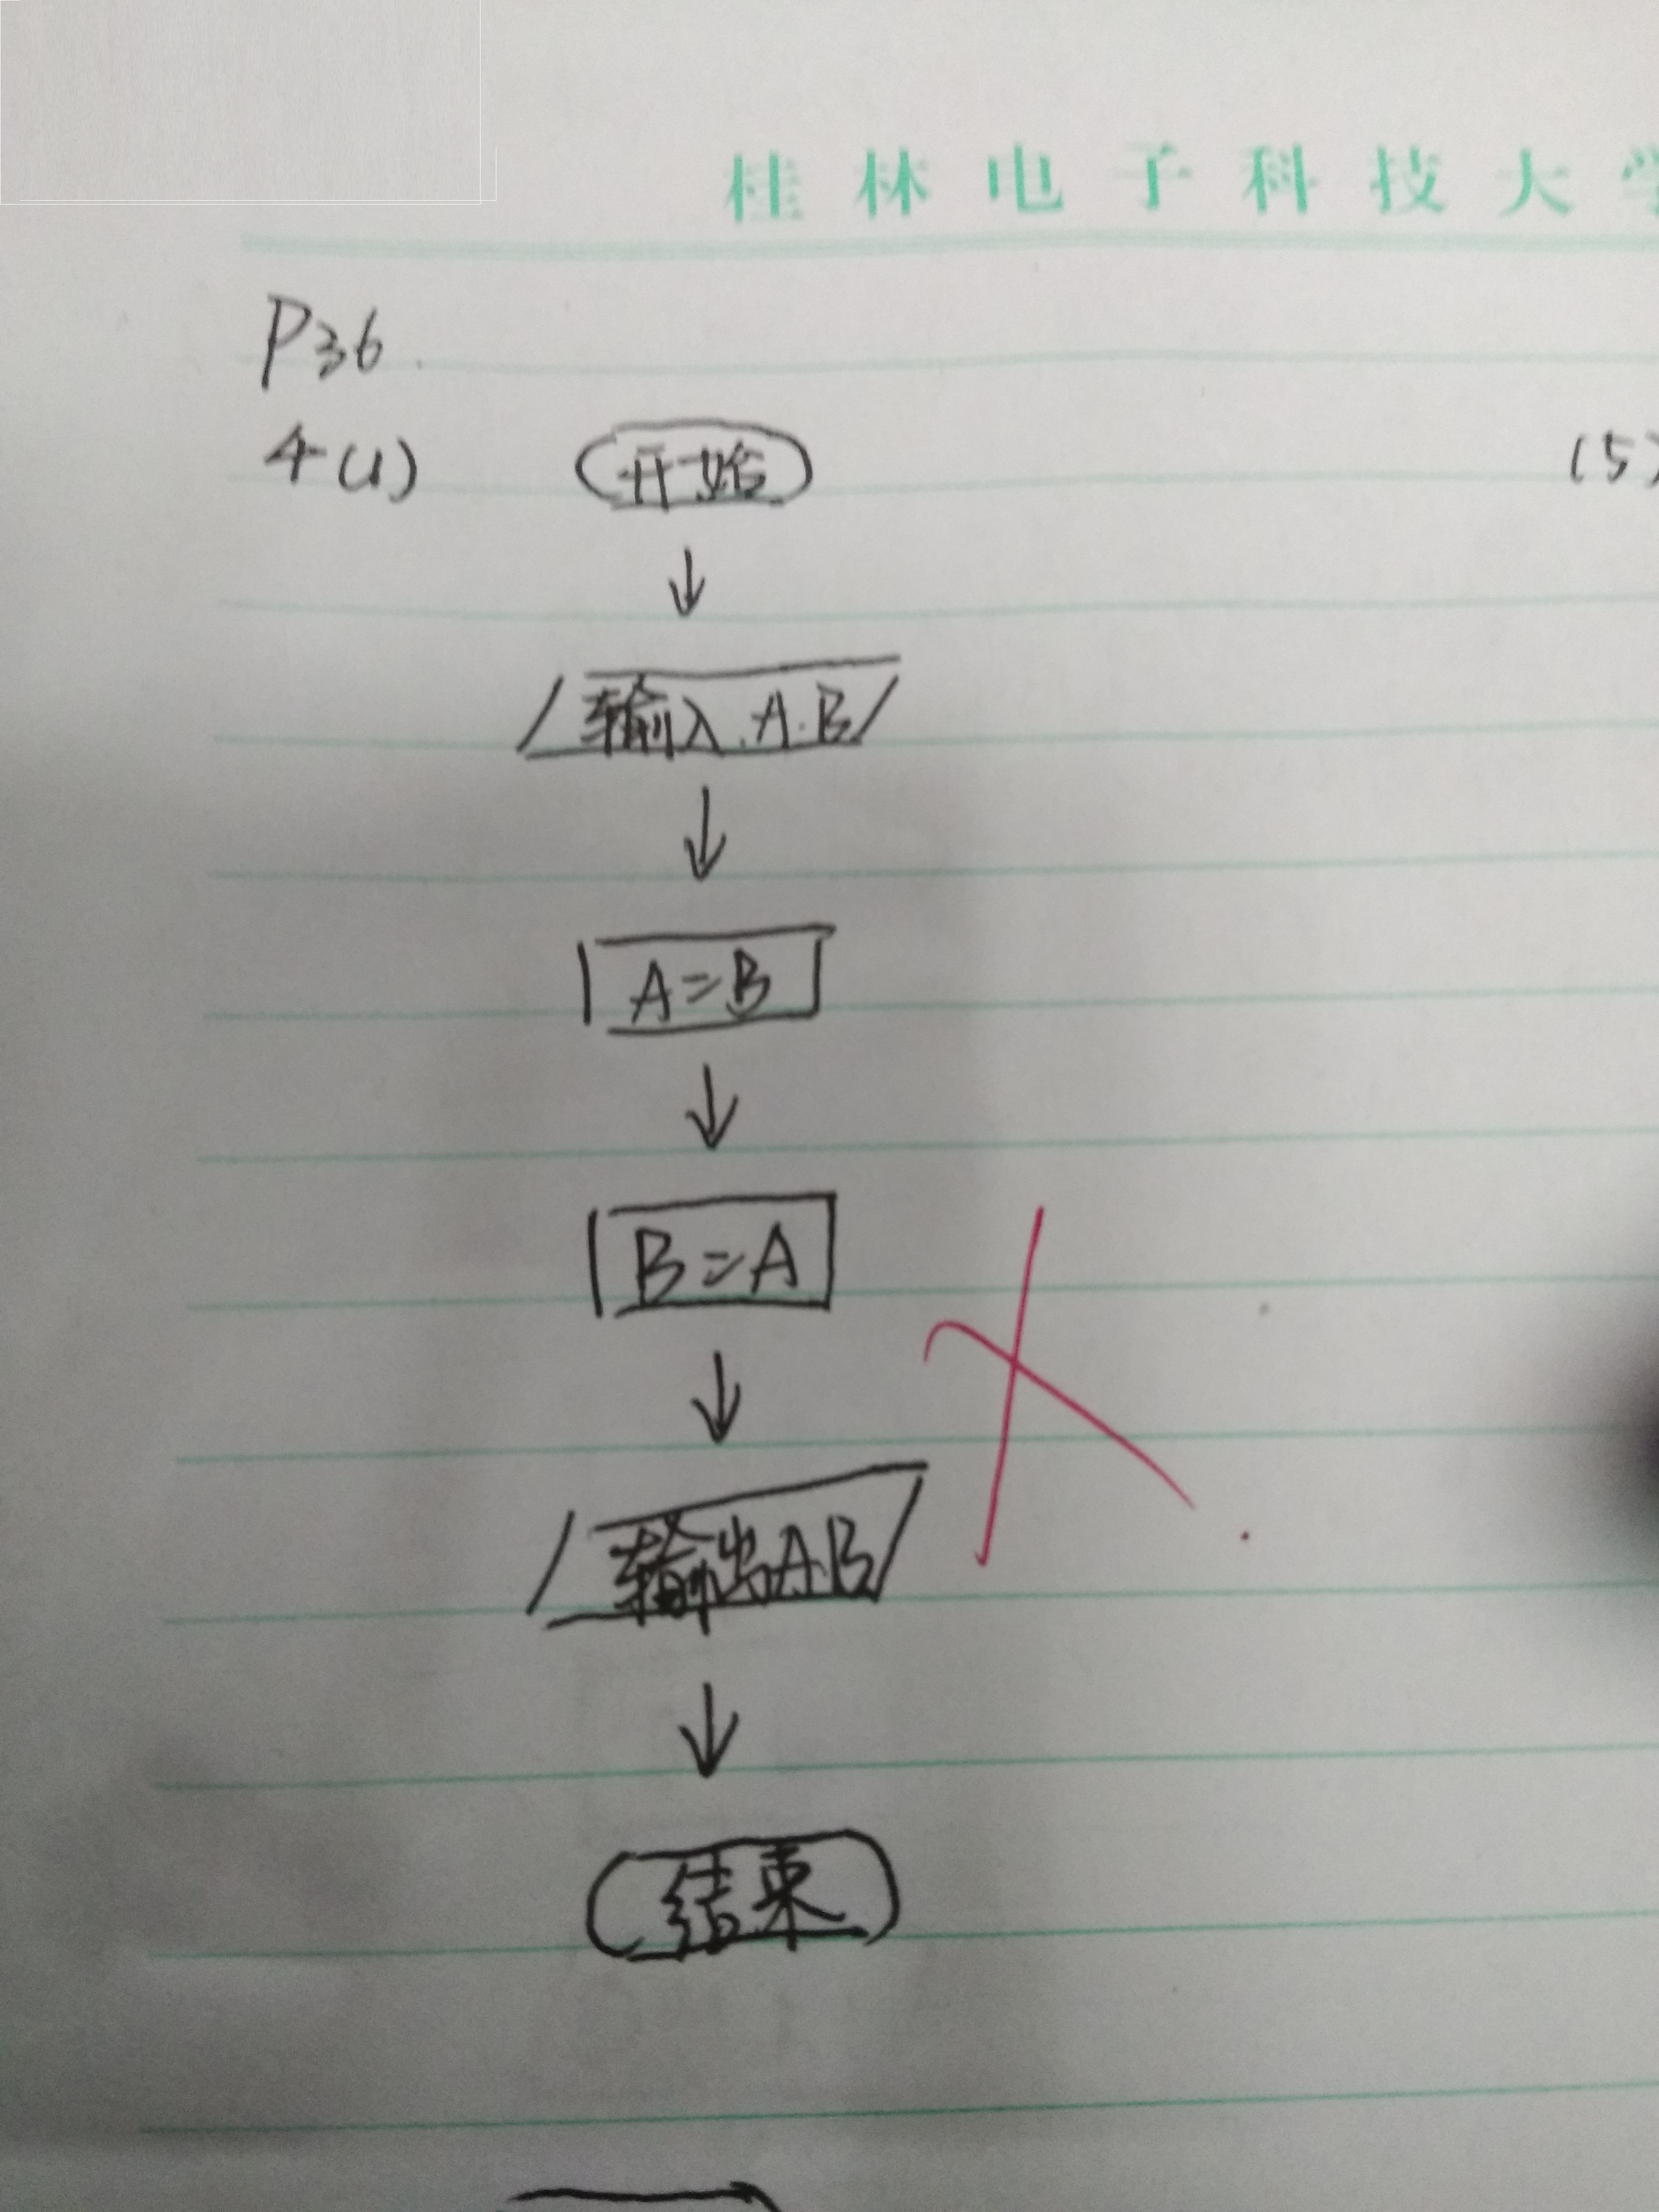 桂林电子科技大
P36
4(1) 开始
(5)
输入.A.B
A=B
B=A
输出A.B
结束